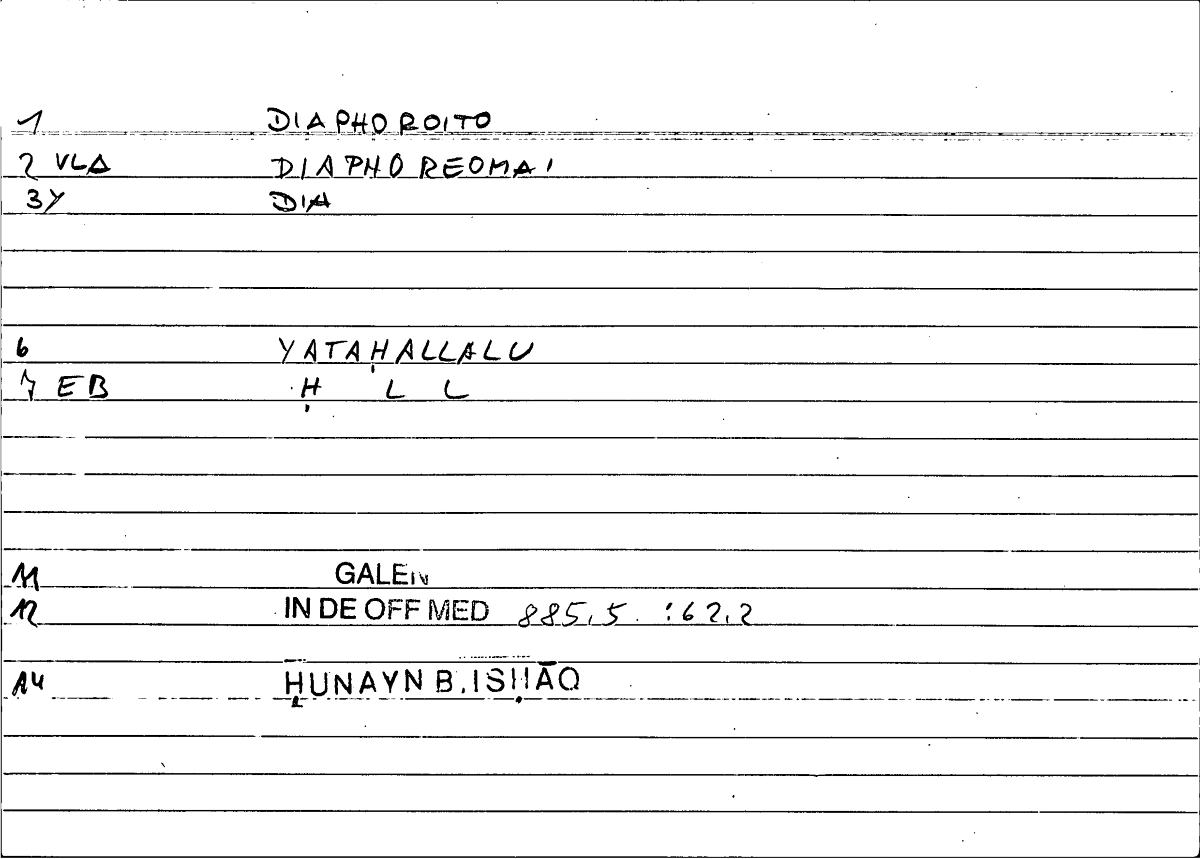 1 DIAPHOROITO
2 VLA DIAPHOREOMAI
3Y DIA
6 YATAḤALLALU
7 EB Ḥ L L
11 GALEN
12 IN DE OFF MED 885,5 :62,2
14 ḤUNAYN B. ISḤĀQ